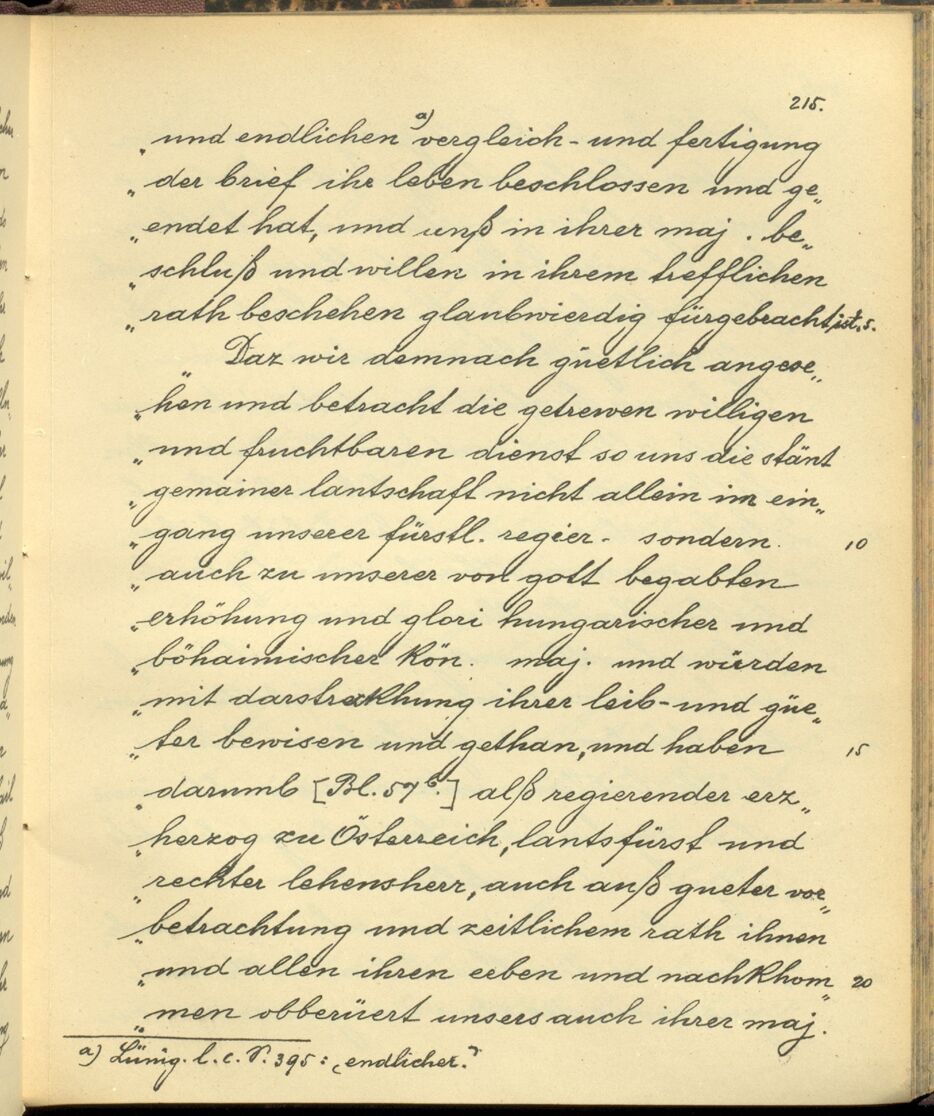 215.
„und endlichen a) vergleich- und fertigung
„der brief ihr leben beschlossen und ge„
„endet hat, und unß in ihrer maj. be„
„schluß und willen in ihrem trefflichen
„rath beschehen glaubwierdig fürgebracht ist. 5.
„Daz wir demnach güetlich angese„
„hen und betracht die getrewen willigen
„und fruchtbaren dienst so uns die stänt
„gemainer lantschaft nicht allein im ein„
„gang unserer fürstl. regier. sondern 10
„auch zu unserer von gott begabten
„erhöhung und glori hungarischer und
„böhaimischer kön. maj. und würden
„mit darstrekhung ihrer leib- und güe„
„ter bewisen und gethan, und haben 15
„darumb [Bl. 57b.] alß regierender erz„
„herzog zu Österreich, lantsfürst und
„rechter lehensherr, auch auß gueter vor„
„betrachtung und zeitlichem rath ihnen
„und allen ihren erben und nachkhom„ 20
„men obberüert unsers auch ihrer maj.
a) Lünig. l. c. S. 395: „endlicher."